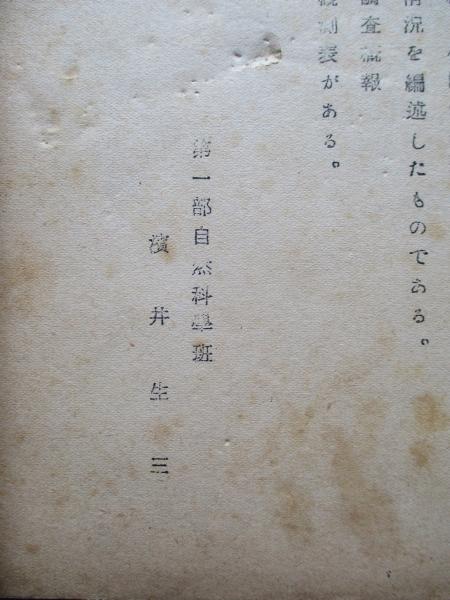 情況を編述したものである。
調査概報
観測表がある。
第一部自然科學班
濱井生三